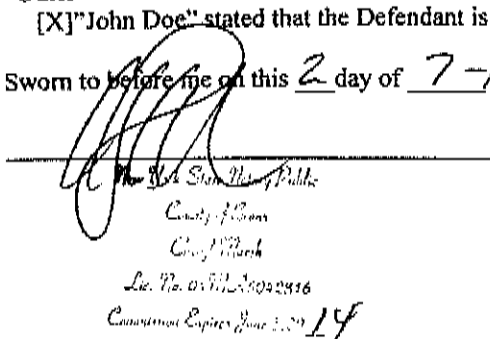 [X]"John Doe" stated that the Defendant is
Sworn to before me on this 2 day of 7-
New York State Notary Public
County of Bronx
Marsh
Lic. No.
Commission Expires June 14